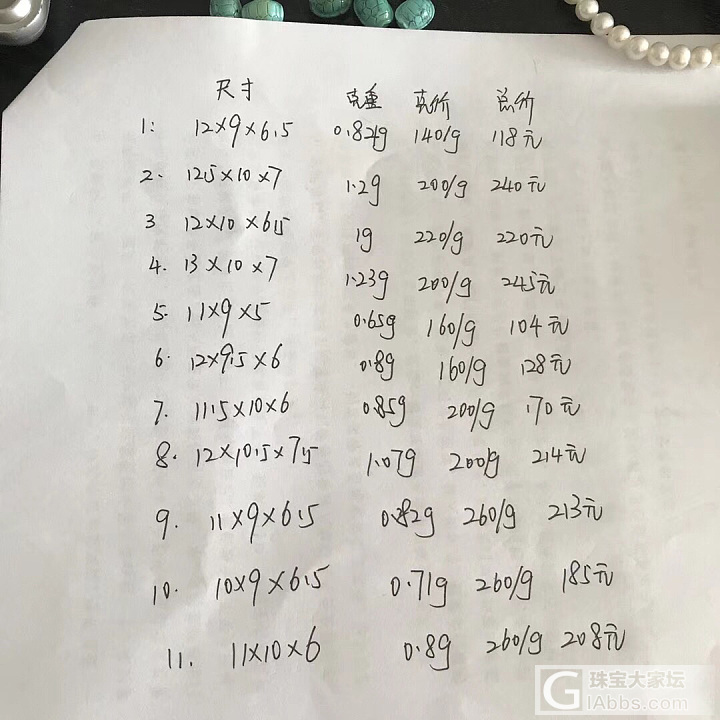 尺寸 克重 克价 总价
1: 12×9×6.5 0.82g 140/g 118元
2. 12.5×10×7 1.2g 200/g 240元
3 12×10×6.5 1g 220/g 220元
4. 13×10×7 1.23g 200/g 245元
5. 11×9×5 0.65g 160/g 104元
6. 12×9.5×6 0.8g 160/g 128元
7. 11.5×10×6 0.85g 200/g 170元
8. 12×10.5×7.5 1.07g 200g 214元
9. 11×9×6.5 0.82g 260/g 213元
10. 10×9×6.5 0.71g 260/g 185元
11. 11×10×6 0.8g 260/g 208元
珠宝大家坛
GIAbbs.com